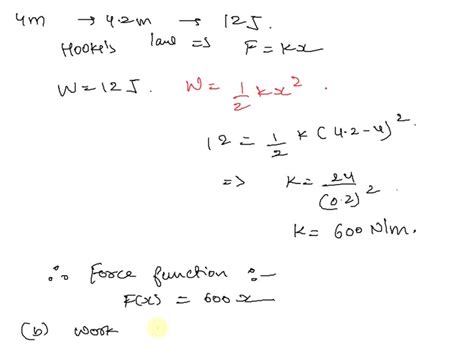 4m → 4.2m → 12J.
Hooke's law => F = Kx
W = 12J. W = 1/2 Kx²
12 = 1/2 K (4.2-4)²
=> K = 24/(0.2)²
K = 600 N/m.
∴ Force function :-
F(x) = 600x
(b) work